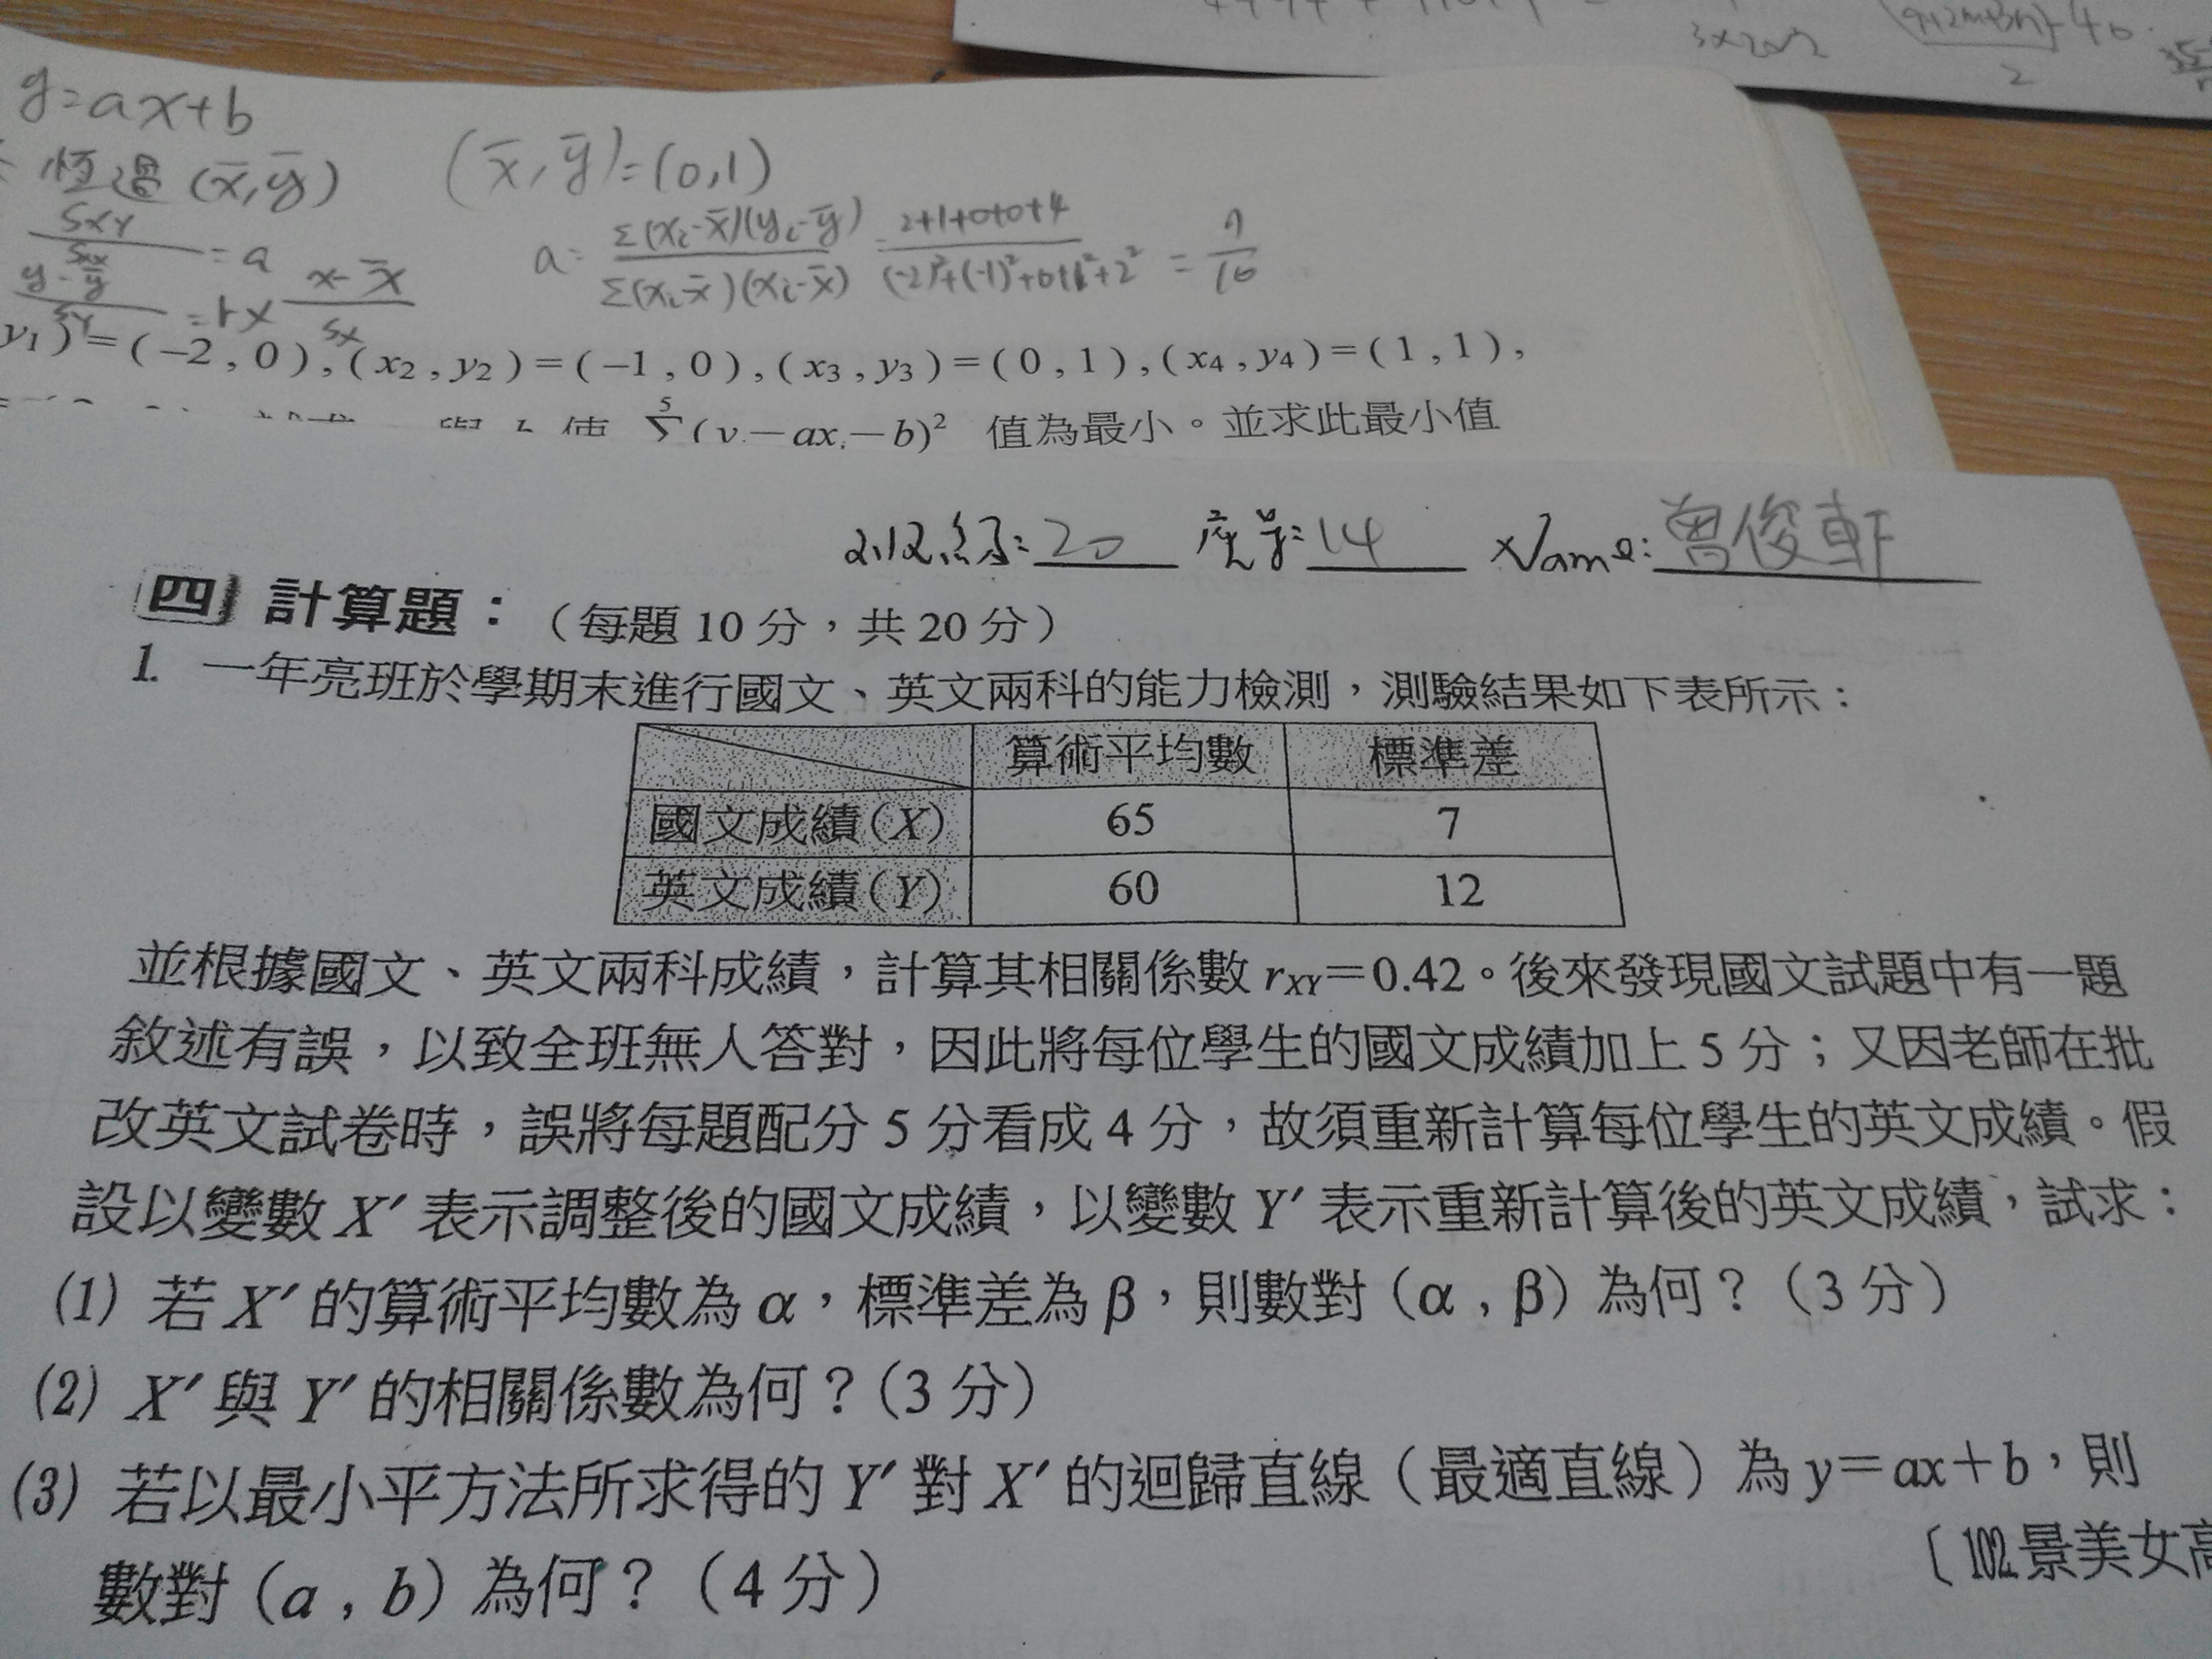 3×20
2
y=ax+b
恆過(x̄,ȳ)
(x̄,ȳ)=(0,1)
Sxy
Sxx
=a
y-ȳ
Sy
=r×
x-x̄
Sx
a=
Σ(xi-x̄)(yi-ȳ)
Σ(xi-x̄)(xi-x̄)
2+1+0+0+4
(-2)²+(-1)²+0+1²+2²
=
10
y₁)=(-2,0),(x₂,y₂)=(-1,0),(x₃,y₃)=(0,1),(x₄,y₄)=(1,1),
5
Σ(y-ax-b)² 值為最小。並求此最小值
20 座號:14 Name:曾俊軒
四 計算題:(每題10分,共20分)
1. 一年亮班於學期末進行國文、英文兩科的能力檢測,測驗結果如下表所示:
算術平均數 標準差
國文成績(X) 65 7
英文成績(Y) 60 12
並根據國文、英文兩科成績,計算其相關係數 rXY=0.42。後來發現國文試題中有一題
敘述有誤,以致全班無人答對,因此將每位學生的國文成績加上5分;又因老師在批
改英文試卷時,誤將每題配分5分看成4分,故須重新計算每位學生的英文成績。假
設以變數 X′ 表示調整後的國文成績,以變數 Y′ 表示重新計算後的英文成績,試求:
(1) 若 X′ 的算術平均數為 α,標準差為 β,則數對(α,β)為何?(3分)
(2) X′ 與 Y′ 的相關係數為何?(3分)
(3) 若以最小平方法所求得的 Y′ 對 X′ 的迴歸直線(最適直線)為 y=ax+b,則
數對(a,b)為何?(4分)
〔102.景美女高